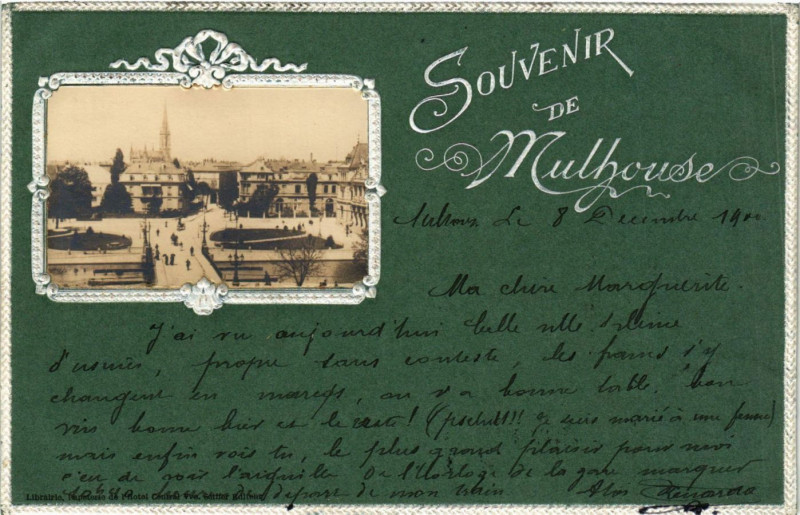 SOUVENIR
DE
Mulhouse
Le 8 Decembre 1900
Ma chère Marguerite.
J'ai vu aujourd'hui belle ville! pleine
d'usines, propre sans conteste, les francs s'y
changent en marcs, on y a bonne table, bon
vin bonne bier et le reste! (pschut!!! je suis marié à une femme)
mais enfin vois tu, le plus grand plaisir pour moi
c'eu de voir l'aiguille de l'horloge de la gare marquer
du départ de mon train
Librairie, Edition